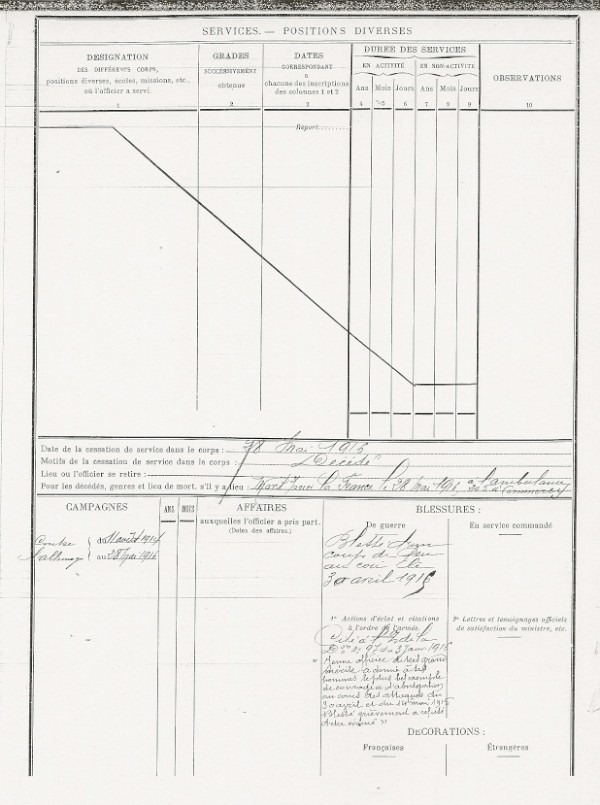 SERVICES. — POSITIONS DIVERSES
DESIGNATION
DES DIFFÉRENTS CORPS,
positions diverses, écoles, missions, etc.,
où l'officier a servi.
1
GRADES
SUCCESSIVEMENT
obtenus
2
DATES
CORRESPONDANT
à
chacune des inscriptions
des colonnes 1 et 2
3
DURÉE DES SERVICES
EN ACTIVITÉ
EN NON-ACTIVITÉ
Ans Mois Jours Ans Mois Jours
4 5 6 7 8 9
OBSERVATIONS
10
Report
Date de la cessation de service dans le corps : 28 Mai 1916
Motifs de la cessation de service dans le corps : "Décédé"
Lieu ou l'officier se retire :
Pour les décédés, genres et lieu de mort, s'il y a lieu : Mort pour la France le 28 mai 1916 à l'ambulance
CAMPAGNES
ANS
MOIS
AFFAIRES
auxquelles l'officier a pris part.
(Dates des affaires.)
Contre
l'allemagne
du 2 août 1914
au 28 Mai 1916
BLESSURES :
De guerre
Blessé d'un
coup de feu
au cou le
30 avril 1916
En service commandé
1° Actions d'éclat et citations
à l'ordre de l'armée.
Cité à l'O de la
Don n° 97 du 3 Juin 1916
"Jeune officier de très grand
mérite a donné à ses
hommes le plus bel exemple
de courage et d'abnégation
au cours des attaques du
30 avril et du 14 mai 1916
Blessé grièvement a refusé
d'être évacué"
2° Lettres et témoignages officiels
de satisfaction du ministre, etc.
DÉCORATIONS :
Françaises
Étrangères